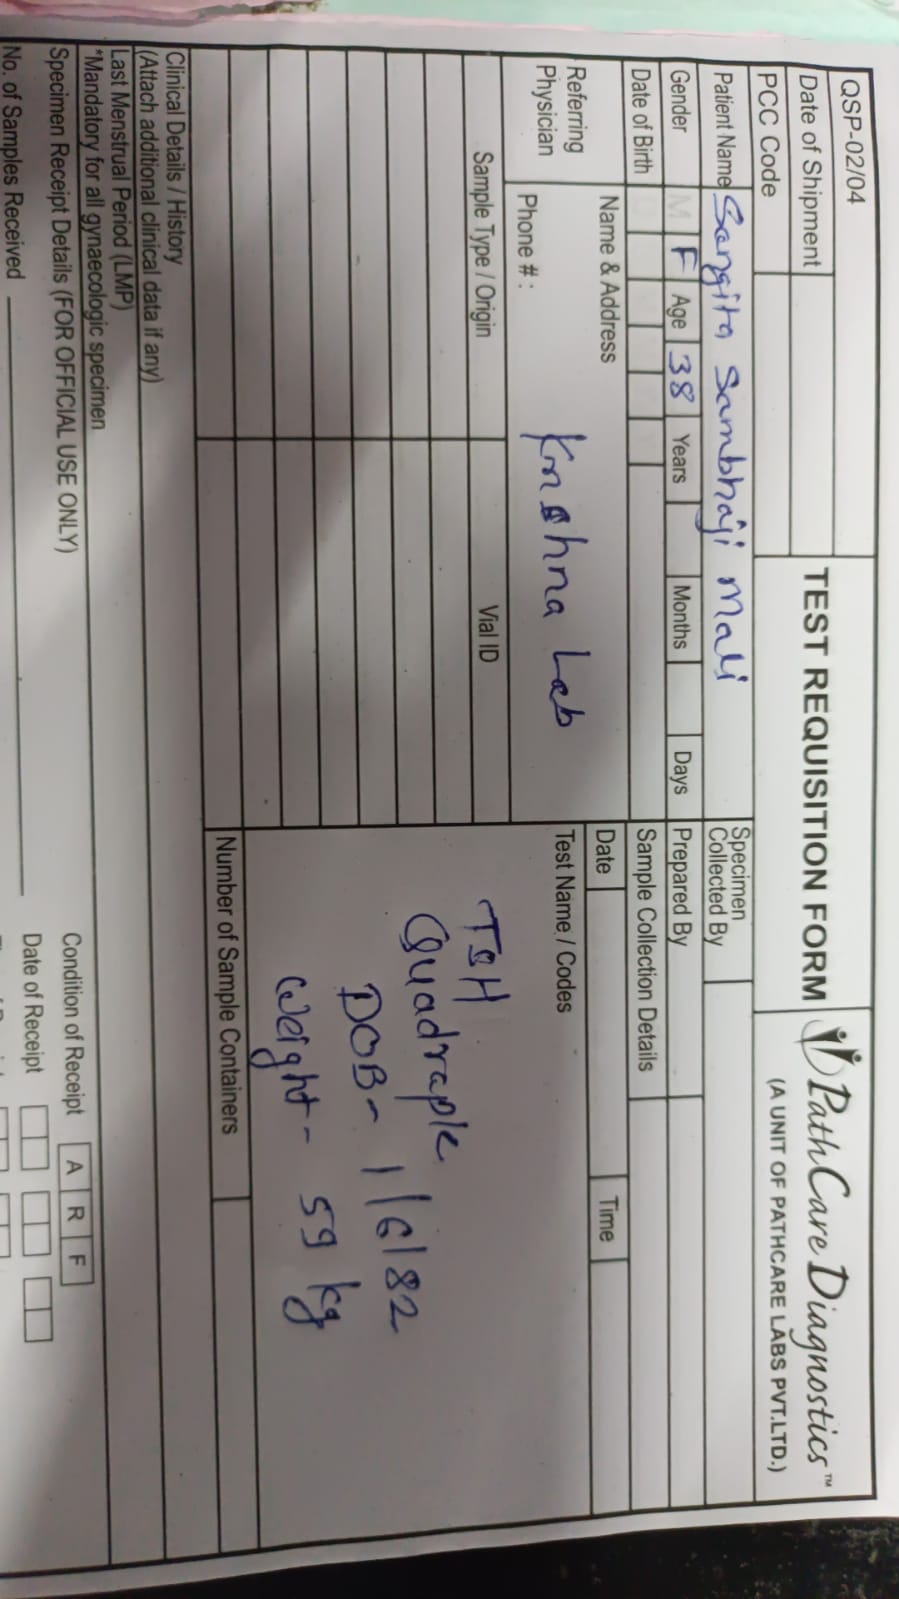 QSP-02/04
Date of Shipment
PCC Code
TEST REQUISITION FORM
PathCare Diagnostics™
(A UNIT OF PATHCARE LABS PVT.LTD.)
Patient Name Sangita Sambhaji Mali
Specimen Collected By
Gender M F Age 38 Years Months Days
Prepared By
Date of Birth
Sample Collection Details
Referring Physician
Name & Address
Krishna Lab
Phone # :
Date Time
Test Name / Codes
Sample Type / Origin Vial ID
TSH
Quadraple
DOB- 1/6/82
Weight- 59 kg
Number of Sample Containers
Clinical Details / History
(Attach additional clinical data if any)
Last Menstrual Period (LMP)
*Mandatory for all gynaecologic specimen
Specimen Receipt Details (FOR OFFICIAL USE ONLY)
Condition of Receipt A R F
No. of Samples Received
Date of Receipt